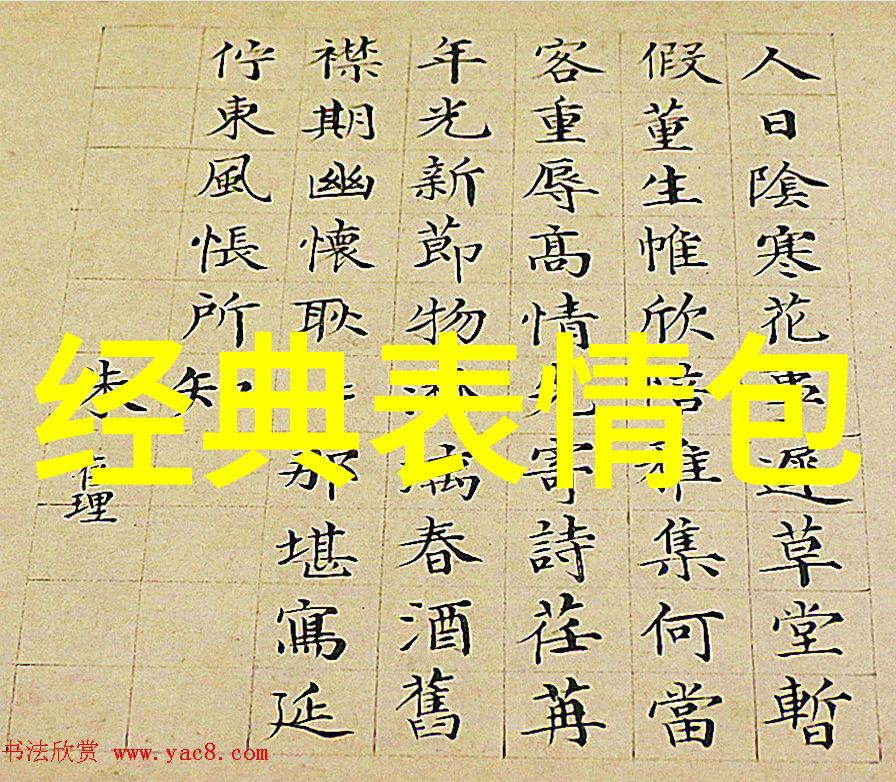 人日陰寒花事遲草堂暫
假董生帷欣陪雅集何當
客重辱高情先寄詩荏苒
年光新節物淋漓春酒舊
襟期幽懷耿耿那堪寫延
佇東風悵所知
朱存理
经典表情包
书法欣赏 www.yac8.com